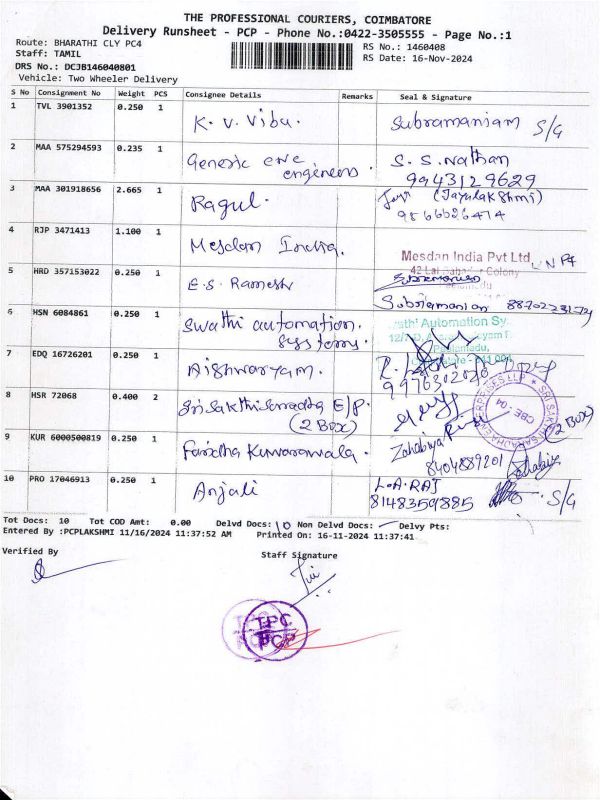 THE PROFESSIONAL COURIERS, COIMBATORE
Delivery Runsheet - PCP - Phone No.:0422-3505555 - Page No.:1
Route: BHARATHI CLY PC4
RS No.: 1460408
Staff: TAMIL
RS Date: 16-Nov-2024
DRS No.: DCJB146040801
Vehicle: Two Wheeler Delivery
S No Consignment No Weight PCS Consignee Details Remarks Seal & Signature
1 TVL 3901352 0.250 1 K. V. Vibu. Subramaniam S/G
2 MAA 575294593 0.235 1 Generic eve engineers. S. S. Nathan
9943129629
3 MAA 301918656 2.665 1 Ragul. (Jayalakshmi)
9866626474
4 RJP 3471413 1.100 1 Mesdan India. Mesdan India Pvt Ltd
Colony
5 HRD 357153022 0.250 1 E.S. Ramesh
Subramanian
6 HSN 6084861 0.250 1 Swathi automation. Automation Sy.
systems.
7 EDQ 16726201 0.250 1 Aishwaryam.
9976302026
8 HSR 72068 0.400 2 Sri Sakthi Saradha E/P.
(2 Box) (2 Box)
SRI SAKTHI SARADHA ENTERPRISES LLP
CBE - 04
9 KUR 6000500819 0.250 1 Faridha Kumaramala. Zahabiya
8404889201
10 PRO 17046913 0.250 1 Anjali L.A. RAJ
8148359885 S/G
Tot Docs: 10 Tot COD Amt: 0.00 Delvd Docs: 10 Non Delvd Docs: Delvy Pts:
Entered By :PCPLAKSHMI 11/16/2024 11:37:52 AM Printed On: 16-11-2024 11:37:41
Verified By
Staff Signature
TPC
PCP